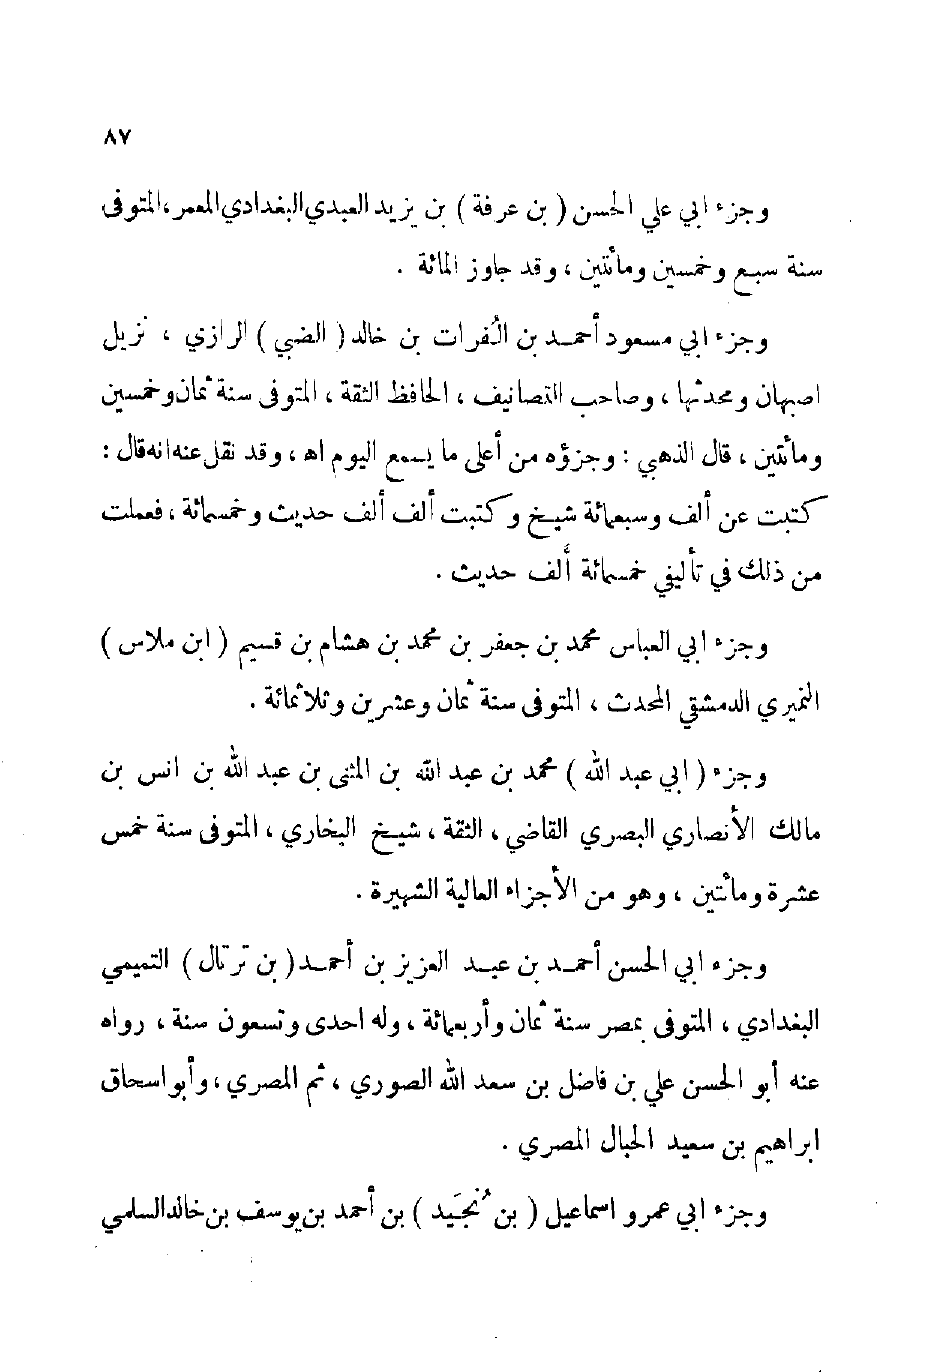 ٨٧
وجزء ابي علي الحسن ( بن عرفة ) بن يزيد العبدي البغدادي المعمر، المتوفى
سنة سبع وخمسين ومائتين ، وقد جاوز المائة .
وجزء ابي مسعود أحمد بن الفُرات بن خالد ( الضبي ) الرازي ، نزيل
اصبهان ومحدثها ، وصاحب التصانيف ، الحافظ الثقة ، المتوفى سنة ثمان وخمسين
ومائتين ، قال الذهبي : وجزؤه من أعلى ما يسمع اليوم اه ، وقد نقل عنه انه قال :
كتبت عن ألف وسبعمائة شيخ وكتبت ألف ألف حديث وخمسمائة ، فعملت
من ذلك في تأليفي خمسمائة ألف حديث .
وجزء ابي العباس محمد بن جعفر بن محمد بن هشام بن قسيم ( ابن ملاس )
النميري الدمشقي المحدث ، المتوفى سنة ثمان وعشرين وثلاثمائة .
وجزء ( ابي عبد الله ) محمد بن عبد الله بن المثنى بن عبد الله بن انس بن
مالك الأنصاري البصري القاضي ، الثقة ، شيخ البخاري ، المتوفى سنة خمس
عشرة ومائتين ، وهو من الأجزاء العالية الشهيرة .
وجزء ابي الحسن أحمد بن عبد العزيز بن أحمد ( بن ثرثال ) التميمي
البغدادي ، المتوفى بمصر سنة ثمان وأربعمائة ، وله احدى وتسعون سنة ، رواه
عنه أبو الحسن علي بن فاضل بن سعد الله الصوري ، ثم المصري ، وأبو اسحاق
ابراهيم بن سعيد الحبال المصري .
وجزء ابي عمرو اسماعيل ( بن نُجَيد ) بن أحمد بن يوسف بن خالد السلمي